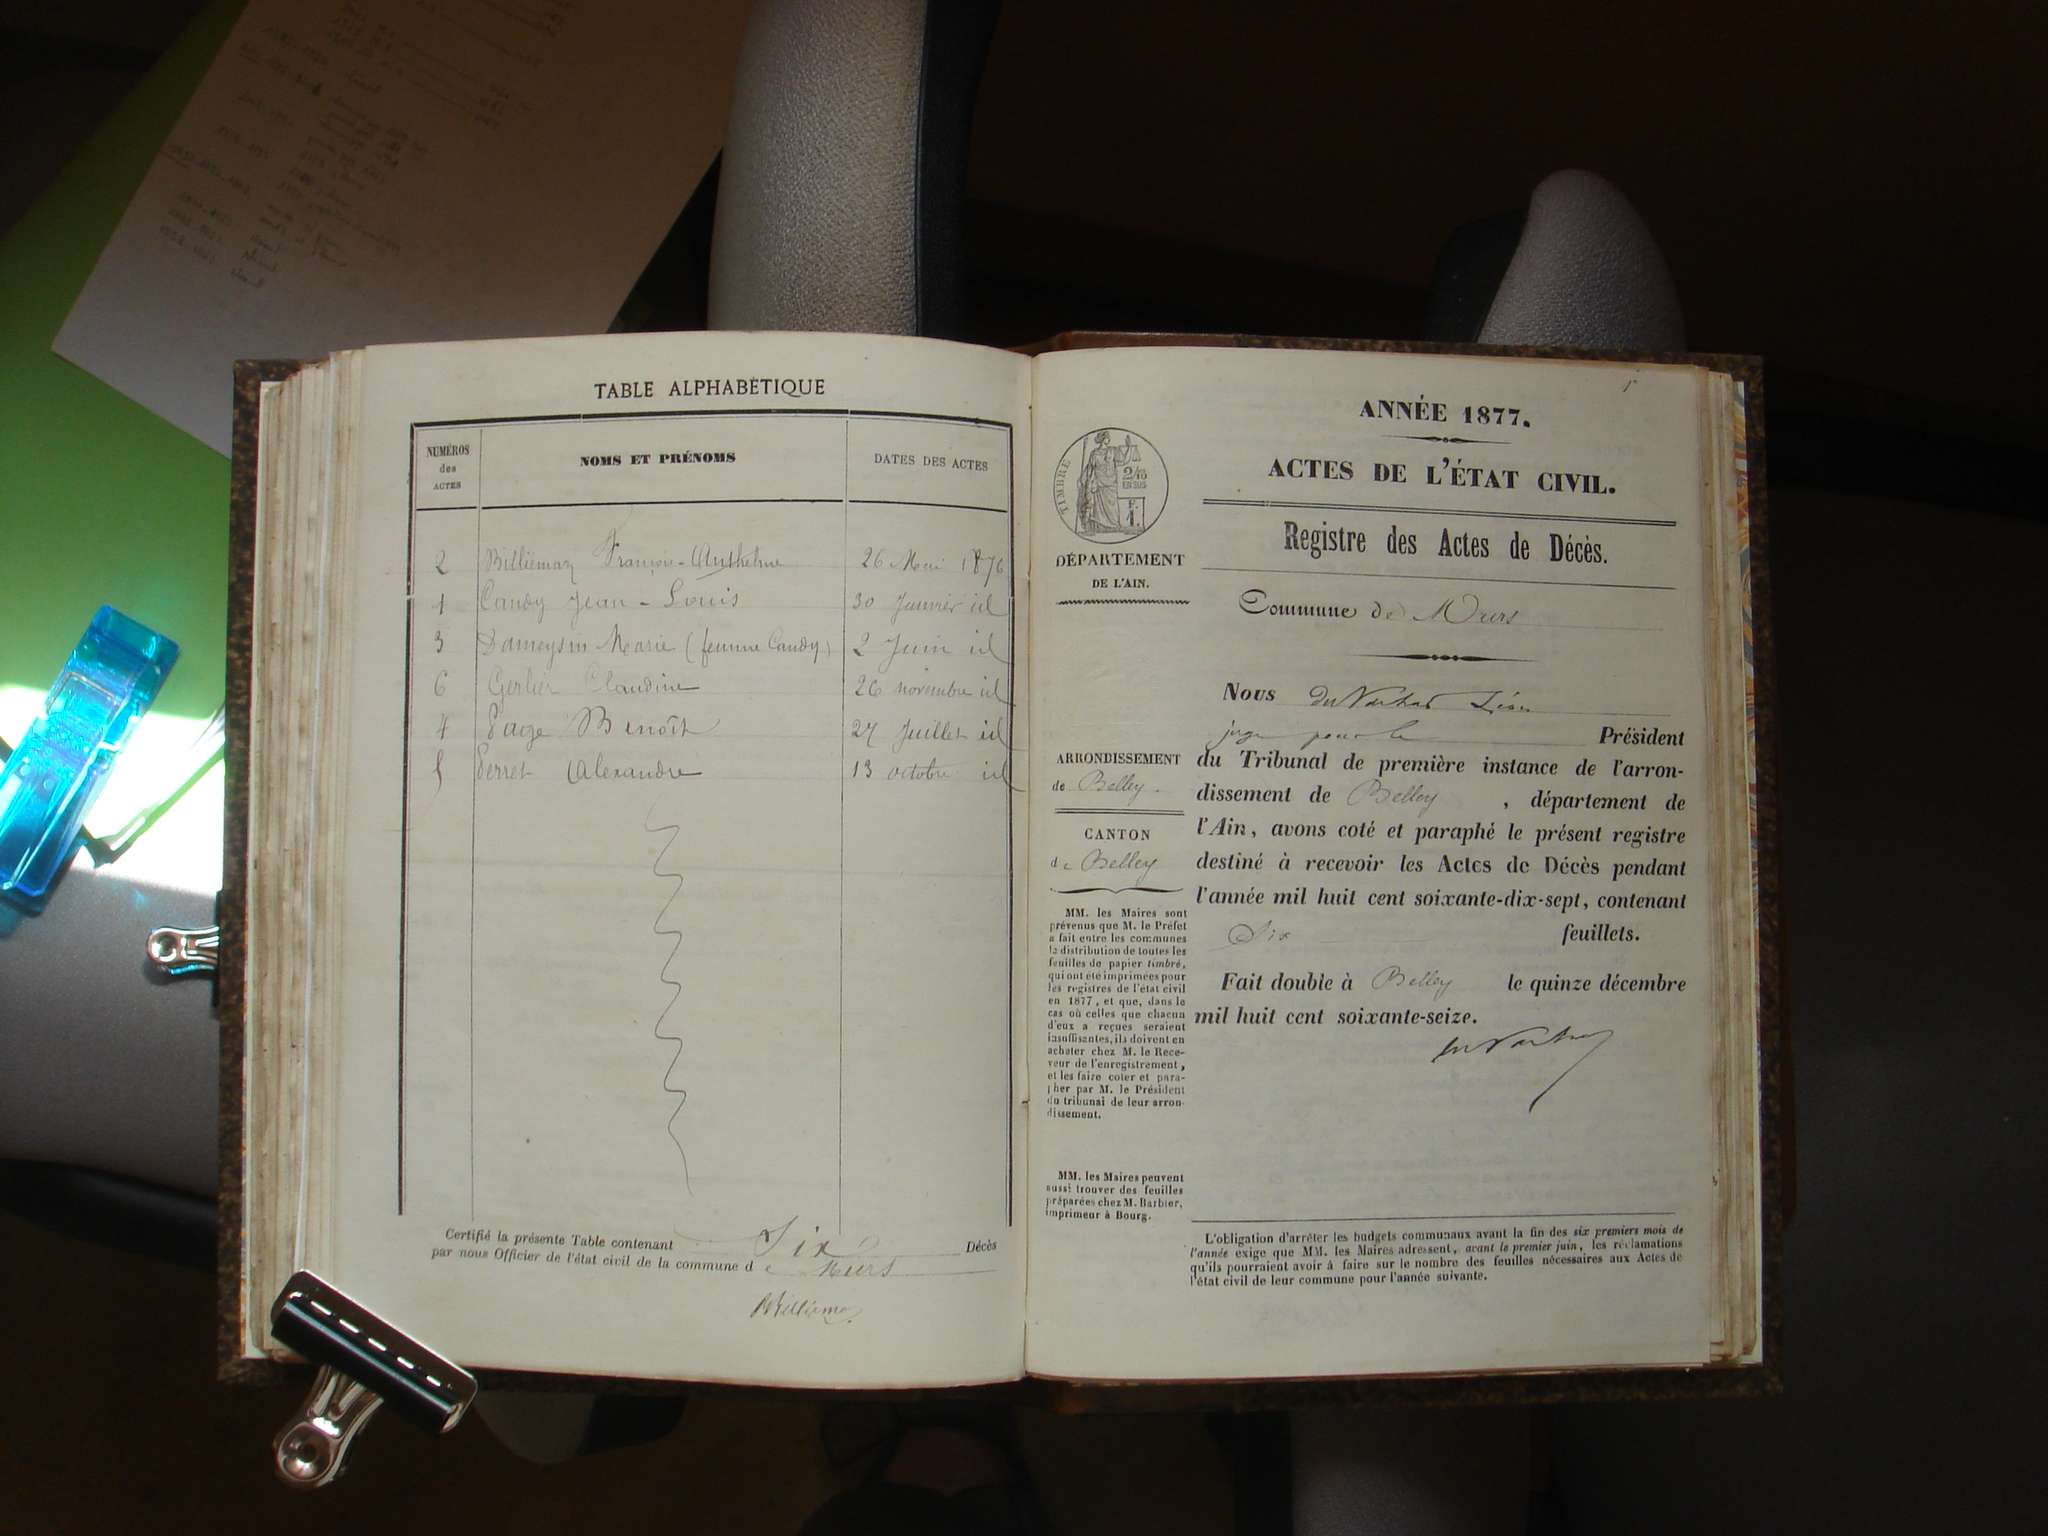 TABLE ALPHABÉTIQUE
NUMÉROS des ACTES
NOMS ET PRÉNOMS
DATES DES ACTES
2 Billiémaz François-Anthelme 26 Mai 1876
1 Candy Jean-Louis 30 Janvier id
3 Dameysin Marie (femme Candy) 2 Juin id
6 Gerlier Claudine 26 novembre id
4 Benoît 27 Juillet id
5 Perret Alexandre 13 octobre id
Certifié la présente Table contenant Six Décès
par nous Officier de l'état civil de la commune de Murs
Billiémaz
ANNÉE 1877.
ACTES DE L'ÉTAT CIVIL.
Registre des Actes de Décès.
Commune de Murs
TIMBRE
2/10
EN SUS
F.
1.
DÉPARTEMENT
DE L'AIN.
ARRONDISSEMENT
de Belley.
CANTON
de Belley
MM. les Maires sont
prévenus que M. le Préfet
a fait entre les communes
la distribution de toutes les
feuilles de papier timbré,
qui ont été imprimées pour
les registres de l'état civil
en 1877, et que, dans le
cas où celles que chacun
d'eux a reçues seraient
insuffisantes, ils doivent en
acheter chez M. le Rece-
veur de l'enregistrement,
et les faire coter et para-
pher par M. le Président
du tribunal de leur arron-
dissement.
MM. les Maires peuvent
aussi trouver des feuilles
préparées chez M. Barbier,
imprimeur à Bourg.
Nous Léon
juge pour le Président
du Tribunal de première instance de l'arron-
dissement de Belley, département de
l'Ain, avons coté et paraphé le présent registre
destiné à recevoir les Actes de Décès pendant
l'année mil huit cent soixante-dix-sept, contenant
Six feuillets.
Fait double à Belley le quinze décembre
mil huit cent soixante-seize.
L'obligation d'arrêter les budgets communaux avant la fin des six premiers mois de
l'année exige que MM. les Maires adressent, avant le premier juin, les réclamations
qu'ils pourraient avoir à faire sur le nombre des feuilles nécessaires aux Actes de
l'état civil de leur commune pour l'année suivante.